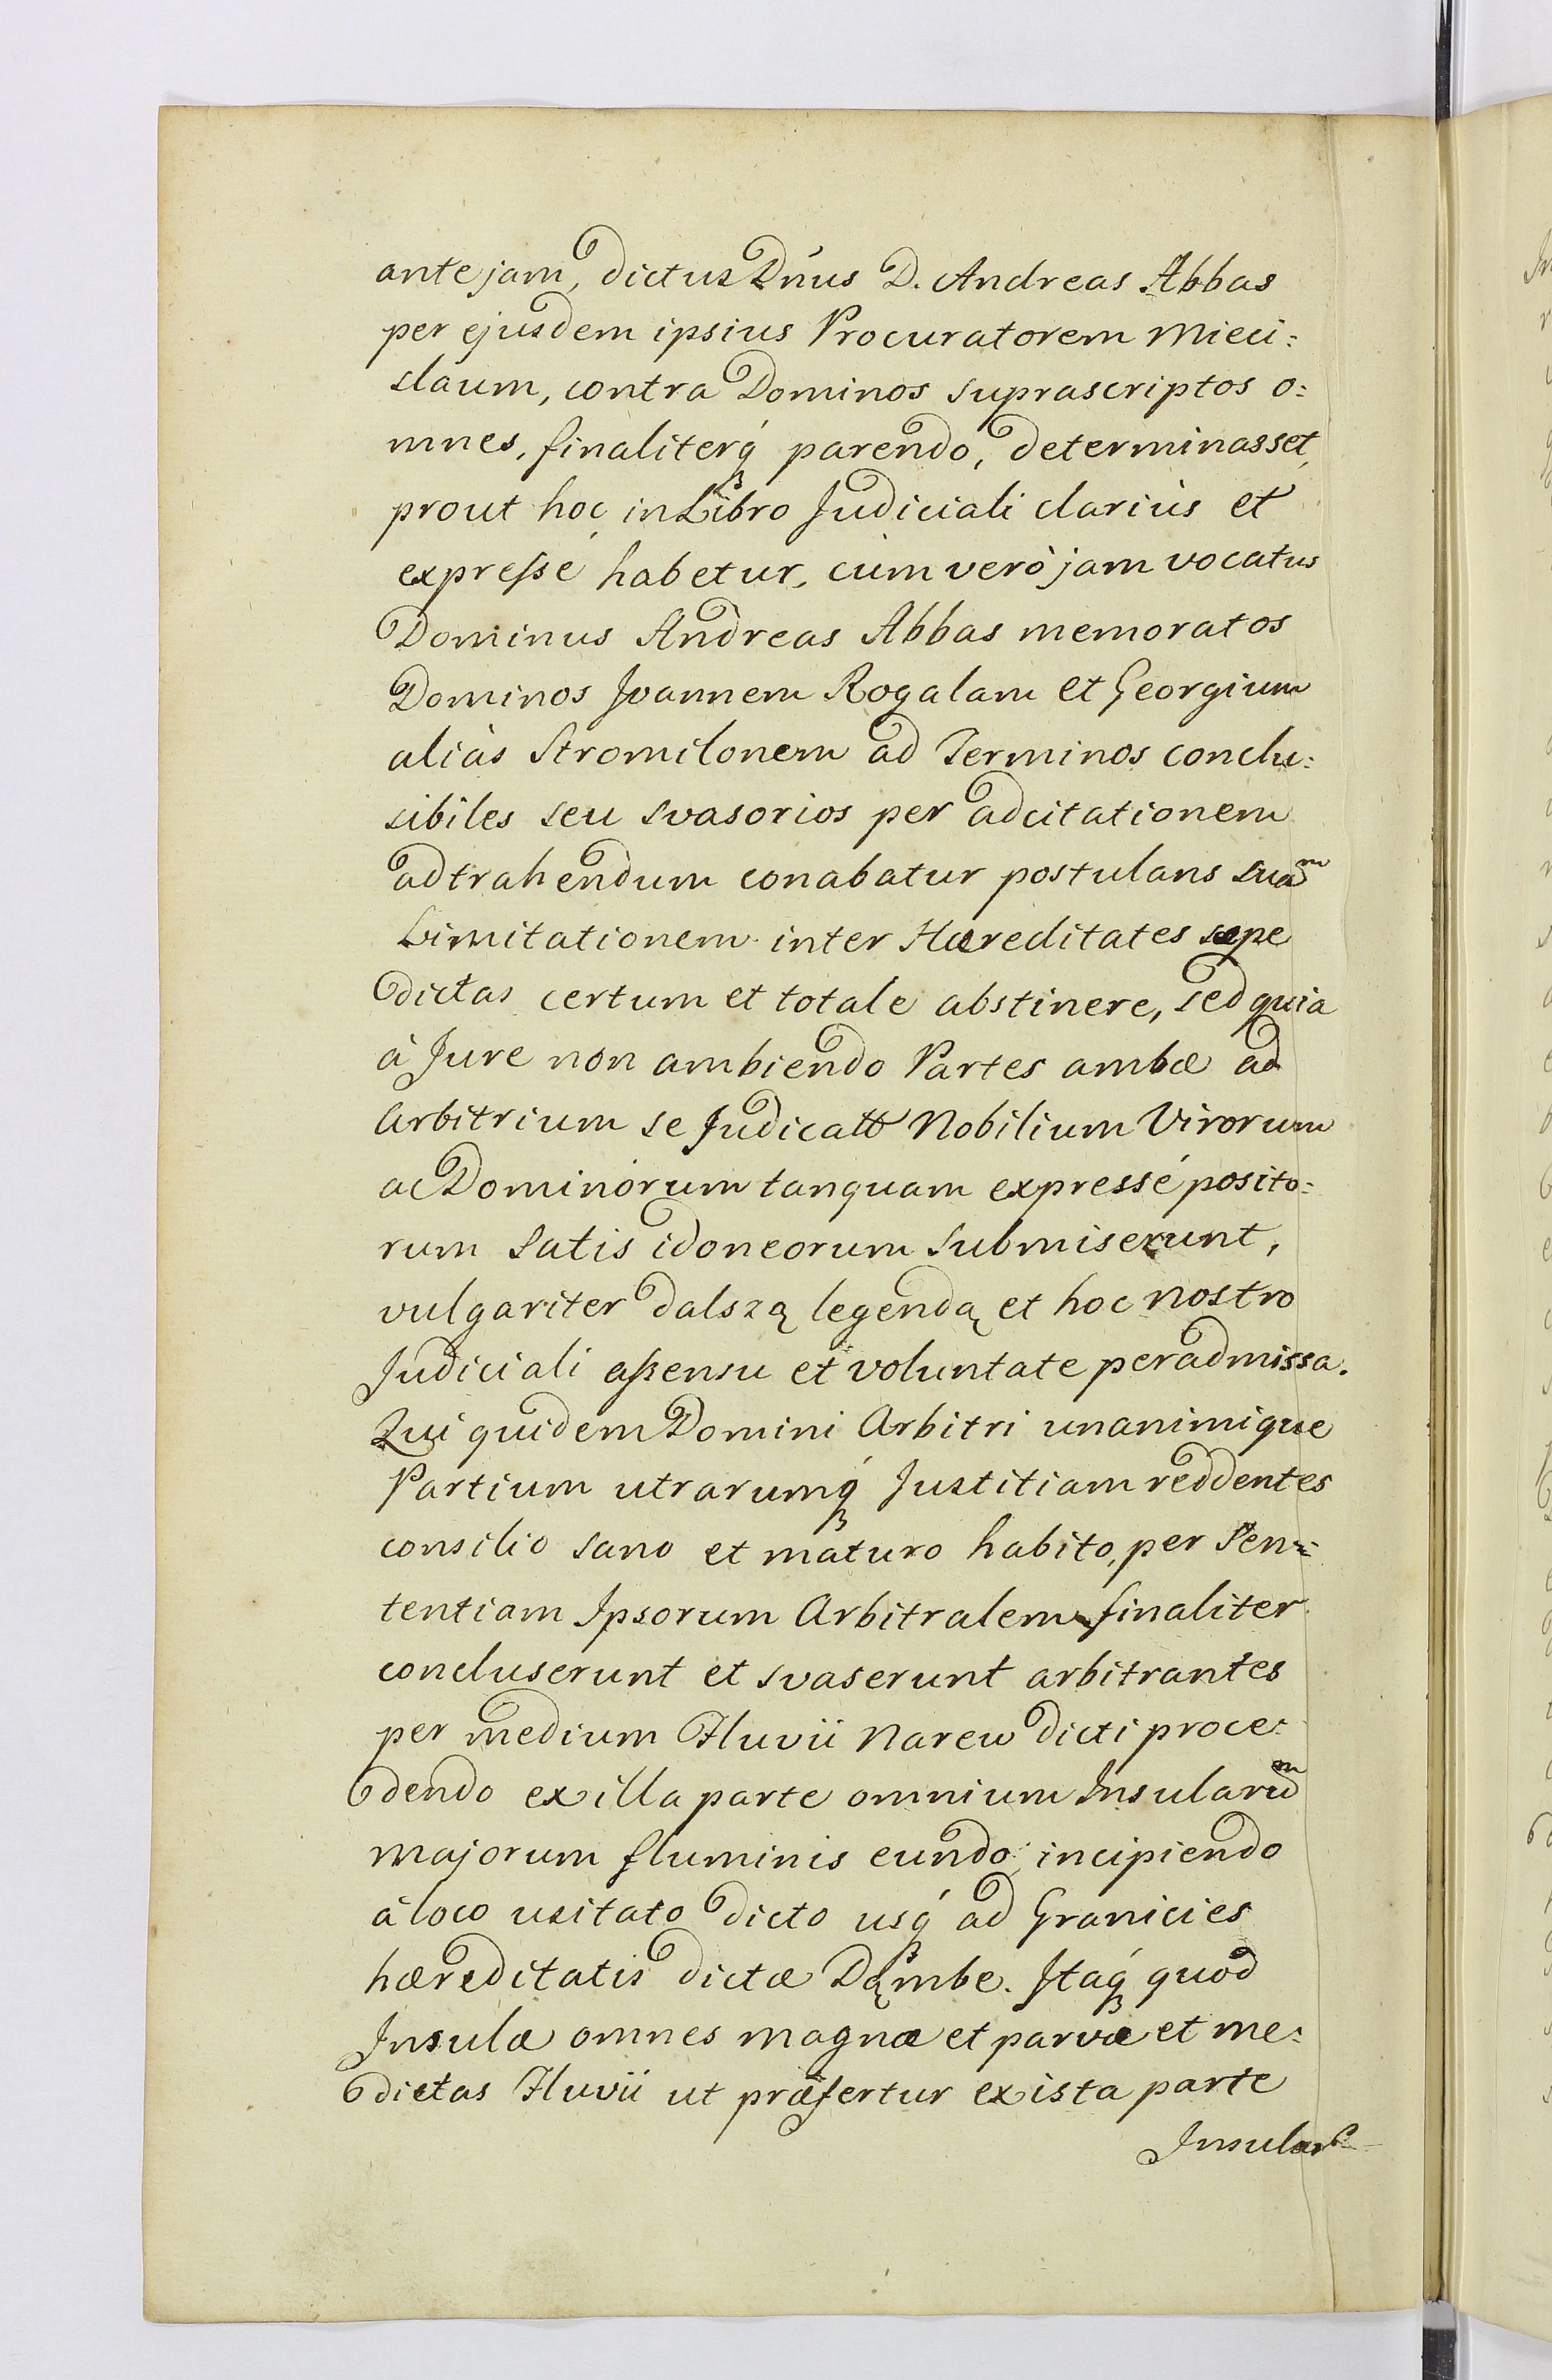 ante jam, dictus Dnús D. Andreas Abbas
per ejusdem ipsius Procuratorem Mieci:
slaum, contra Dominos suprascriptos o:
mnes, finaliterq́ parendo, determinasset,
prout hoc in Libro Judiciali clariùs et
expreſsé habetur, cùm verò jam vocatus
Dominus Andreas Abbas memoratos
Dominos Joannem Rogalam et Georgium
aliàs Stromilonem ad Terminos conclu:
sibiles seu svasorios per adcitationem
adtrahendum conabatur postulans suam
Limitationem inter Hæreditates sæpe
dictas certum et totale abstinere, sed quia
à Jure non ambiendo Partes ambæ ad
Arbitrium se Judicatt Nobilium Virorum
ac Dominorum tanquam expressé posito:
rum satis idoneorum submiserunt,
vulgariter dalszą legendą et hoc nostro
Judiciali aſsensu et voluntate peradmissa.
Qui quidem Domini Arbitri unanimique
Partium utrarumq́ Justitiam reddentes
consilio sano et maturo habito, per Sen:
tentiam Ipsorum Arbitralem finaliter
concluserunt et svaserunt arbitrantes
per medium Fluvii Narew dicti proce:
dendo ex illa parte omnium Insularum
majorum fluminis eundo incipiendo
à loco usitato dicto usq́ ad Granicies
hæreditatis dictæ Dąmbe. Itaq́ quod
Insulæ omnes magnæ et parvæ et me:
dietas Fluvii ut præfertur ex ista parte